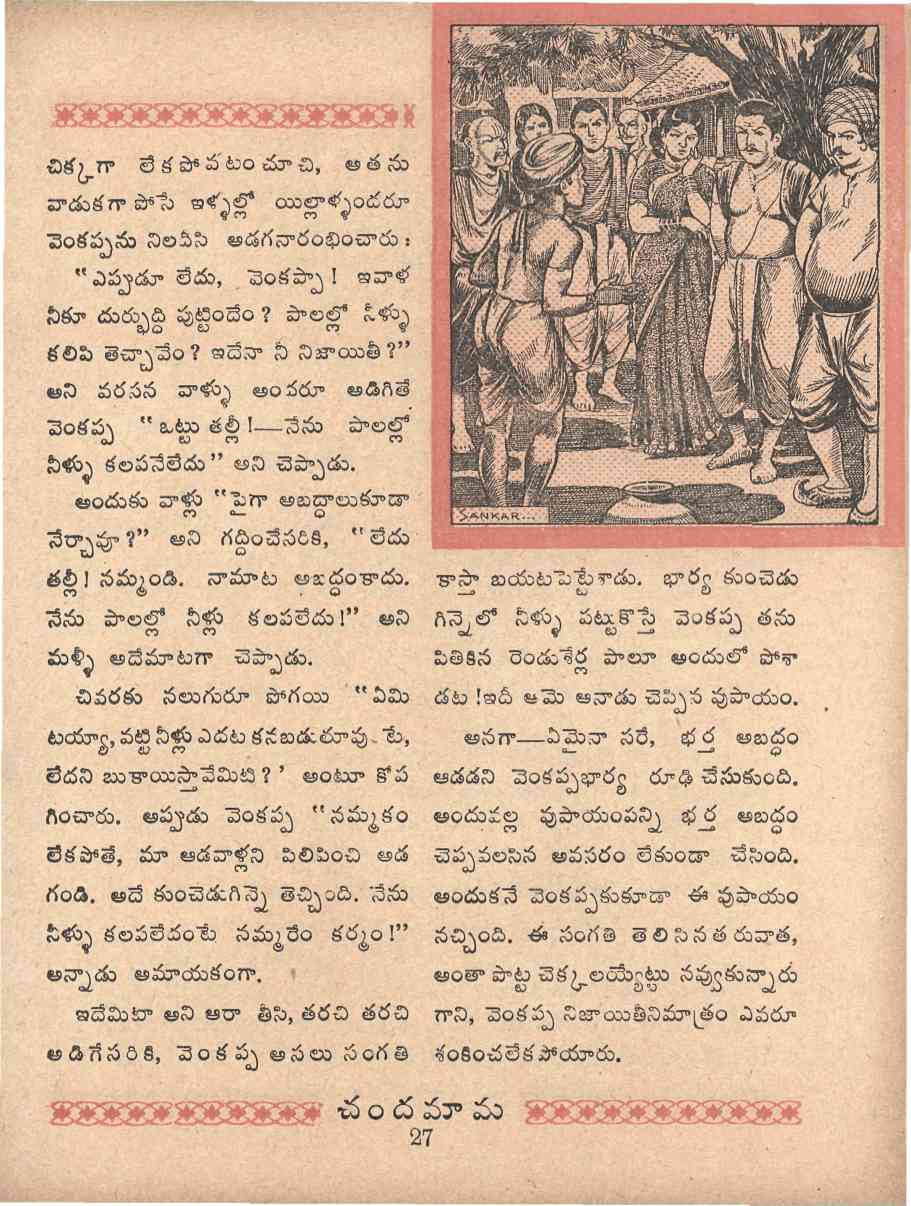 చిక్కగా లేకపోవటం చూచి, అతను
వాడుకగా పోసే ఇళ్ళల్లో యిల్లాళ్ళందరూ
వెంకప్పను నిలవేసి అడగనారంభించారు:
"ఎప్పుడూ లేదు, వెంకప్పా! ఇవాళ
నీకూ దుర్బుద్ధి పుట్టిందేం? పాలల్లో నీళ్ళు
కలిపి తెచ్చావేం? ఇదేనా నీ నిజాయితీ?"
అని వరసన వాళ్ళు అందరూ అడిగితే
వెంకప్ప "ఒట్టు తల్లీ!—నేను పాలల్లో
నీళ్ళు కలపనేలేదు" అని చెప్పాడు.
అందుకు వాళ్లు "పైగా అబద్ధాలుకూడా
నేర్చావూ?" అని గద్దించేసరికి, "లేదు
తల్లీ! నమ్మండి. నామాట అబద్ధంకాదు.
నేను పాలల్లో నీళ్లు కలపలేదు!" అని
మళ్ళీ అదేమాటగా చెప్పాడు.
చివరకు నలుగురూ పోగయి "ఏమి
టయ్యా, వట్టి నీళ్లు ఎదట కనబడుతూవుంటే,
లేదని బుకాయిస్తావేమిటి?' అంటూ కోప
గించారు. అప్పుడు వెంకప్ప "నమ్మకం
లేకపోతే, మా ఆడవాళ్లని పిలిపించి అడ
గండి. అదే కుంచెడుగిన్నె తెచ్చింది. నేను
నీళ్ళు కలపలేదంటే నమ్మరేం కర్మం!"
అన్నాడు అమాయకంగా.
ఇదేమిటా అని ఆరా తీసి, తరచి తరచి
అడిగేసరికి, వెంకప్ప అసలు సంగతి
SANKAR...
కాస్తా బయటపెట్టేశాడు. భార్య కుంచెడు
గిన్నెలో నీళ్ళు పట్టుకొస్తే వెంకప్ప తను
పితికిన రెండుశేర్ల పాలూ అందులో పోశా
డట! ఇదీ ఆమె ఆనాడు చెప్పిన వుపాయం.
అనగా—ఏమైనా సరే, భర్త అబద్ధం
ఆడడని వెంకప్పభార్య రూఢి చేసుకుంది.
అందువల్ల వుపాయంపన్ని భర్త అబద్ధం
చెప్పవలసిన అవసరం లేకుండా చేసింది.
అందుకనే వెంకప్పకుకూడా ఈ వుపాయం
నచ్చింది. ఈ సంగతి తెలిసినతరువాత,
అంతా పొట్ట చెక్కలయ్యేట్టు నవ్వుకున్నారు
గాని, వెంకప్ప నిజాయితీనిమాత్రం ఎవరూ
శంకించలేకపోయారు.
చందమామ
27